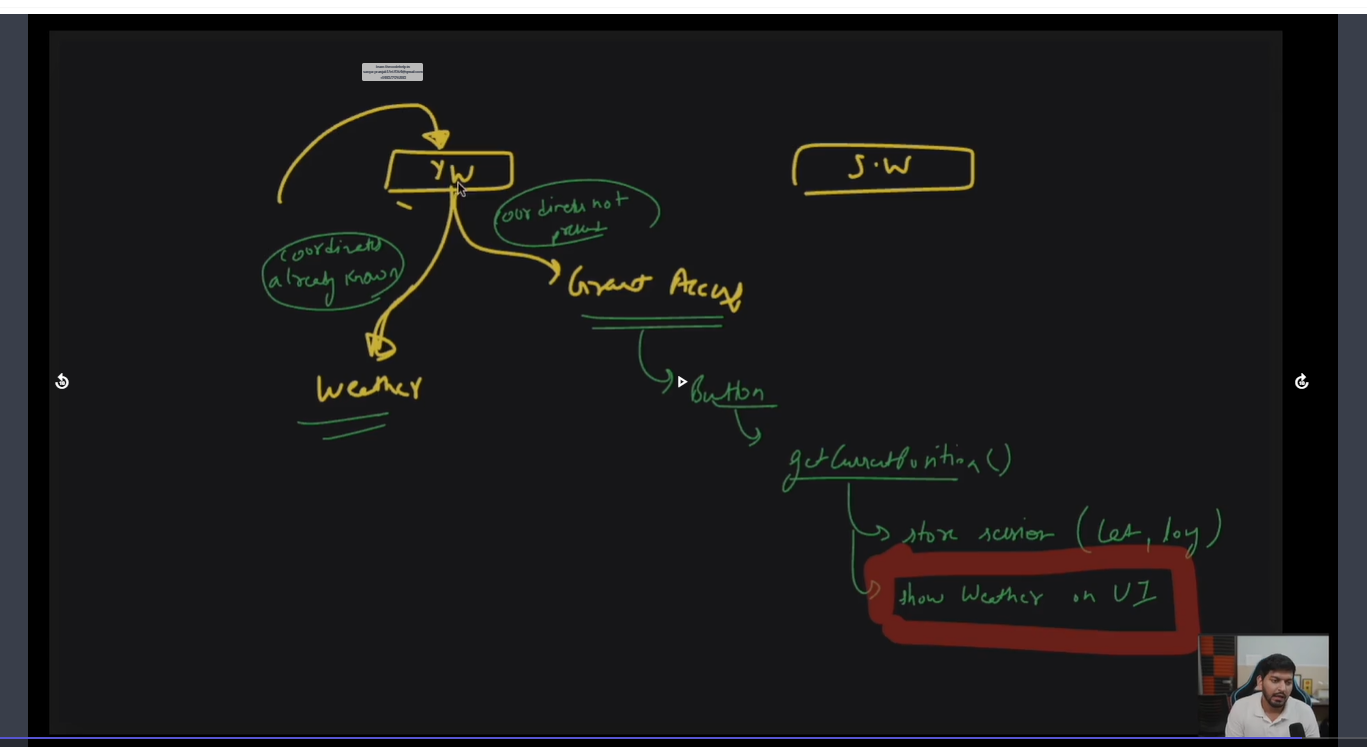 YW
S.W
coordinates not
present
coordinates
already known
Grant Access
Weather
Button
getCurrentPosition()
store session (lat, log)
show Weather on UI